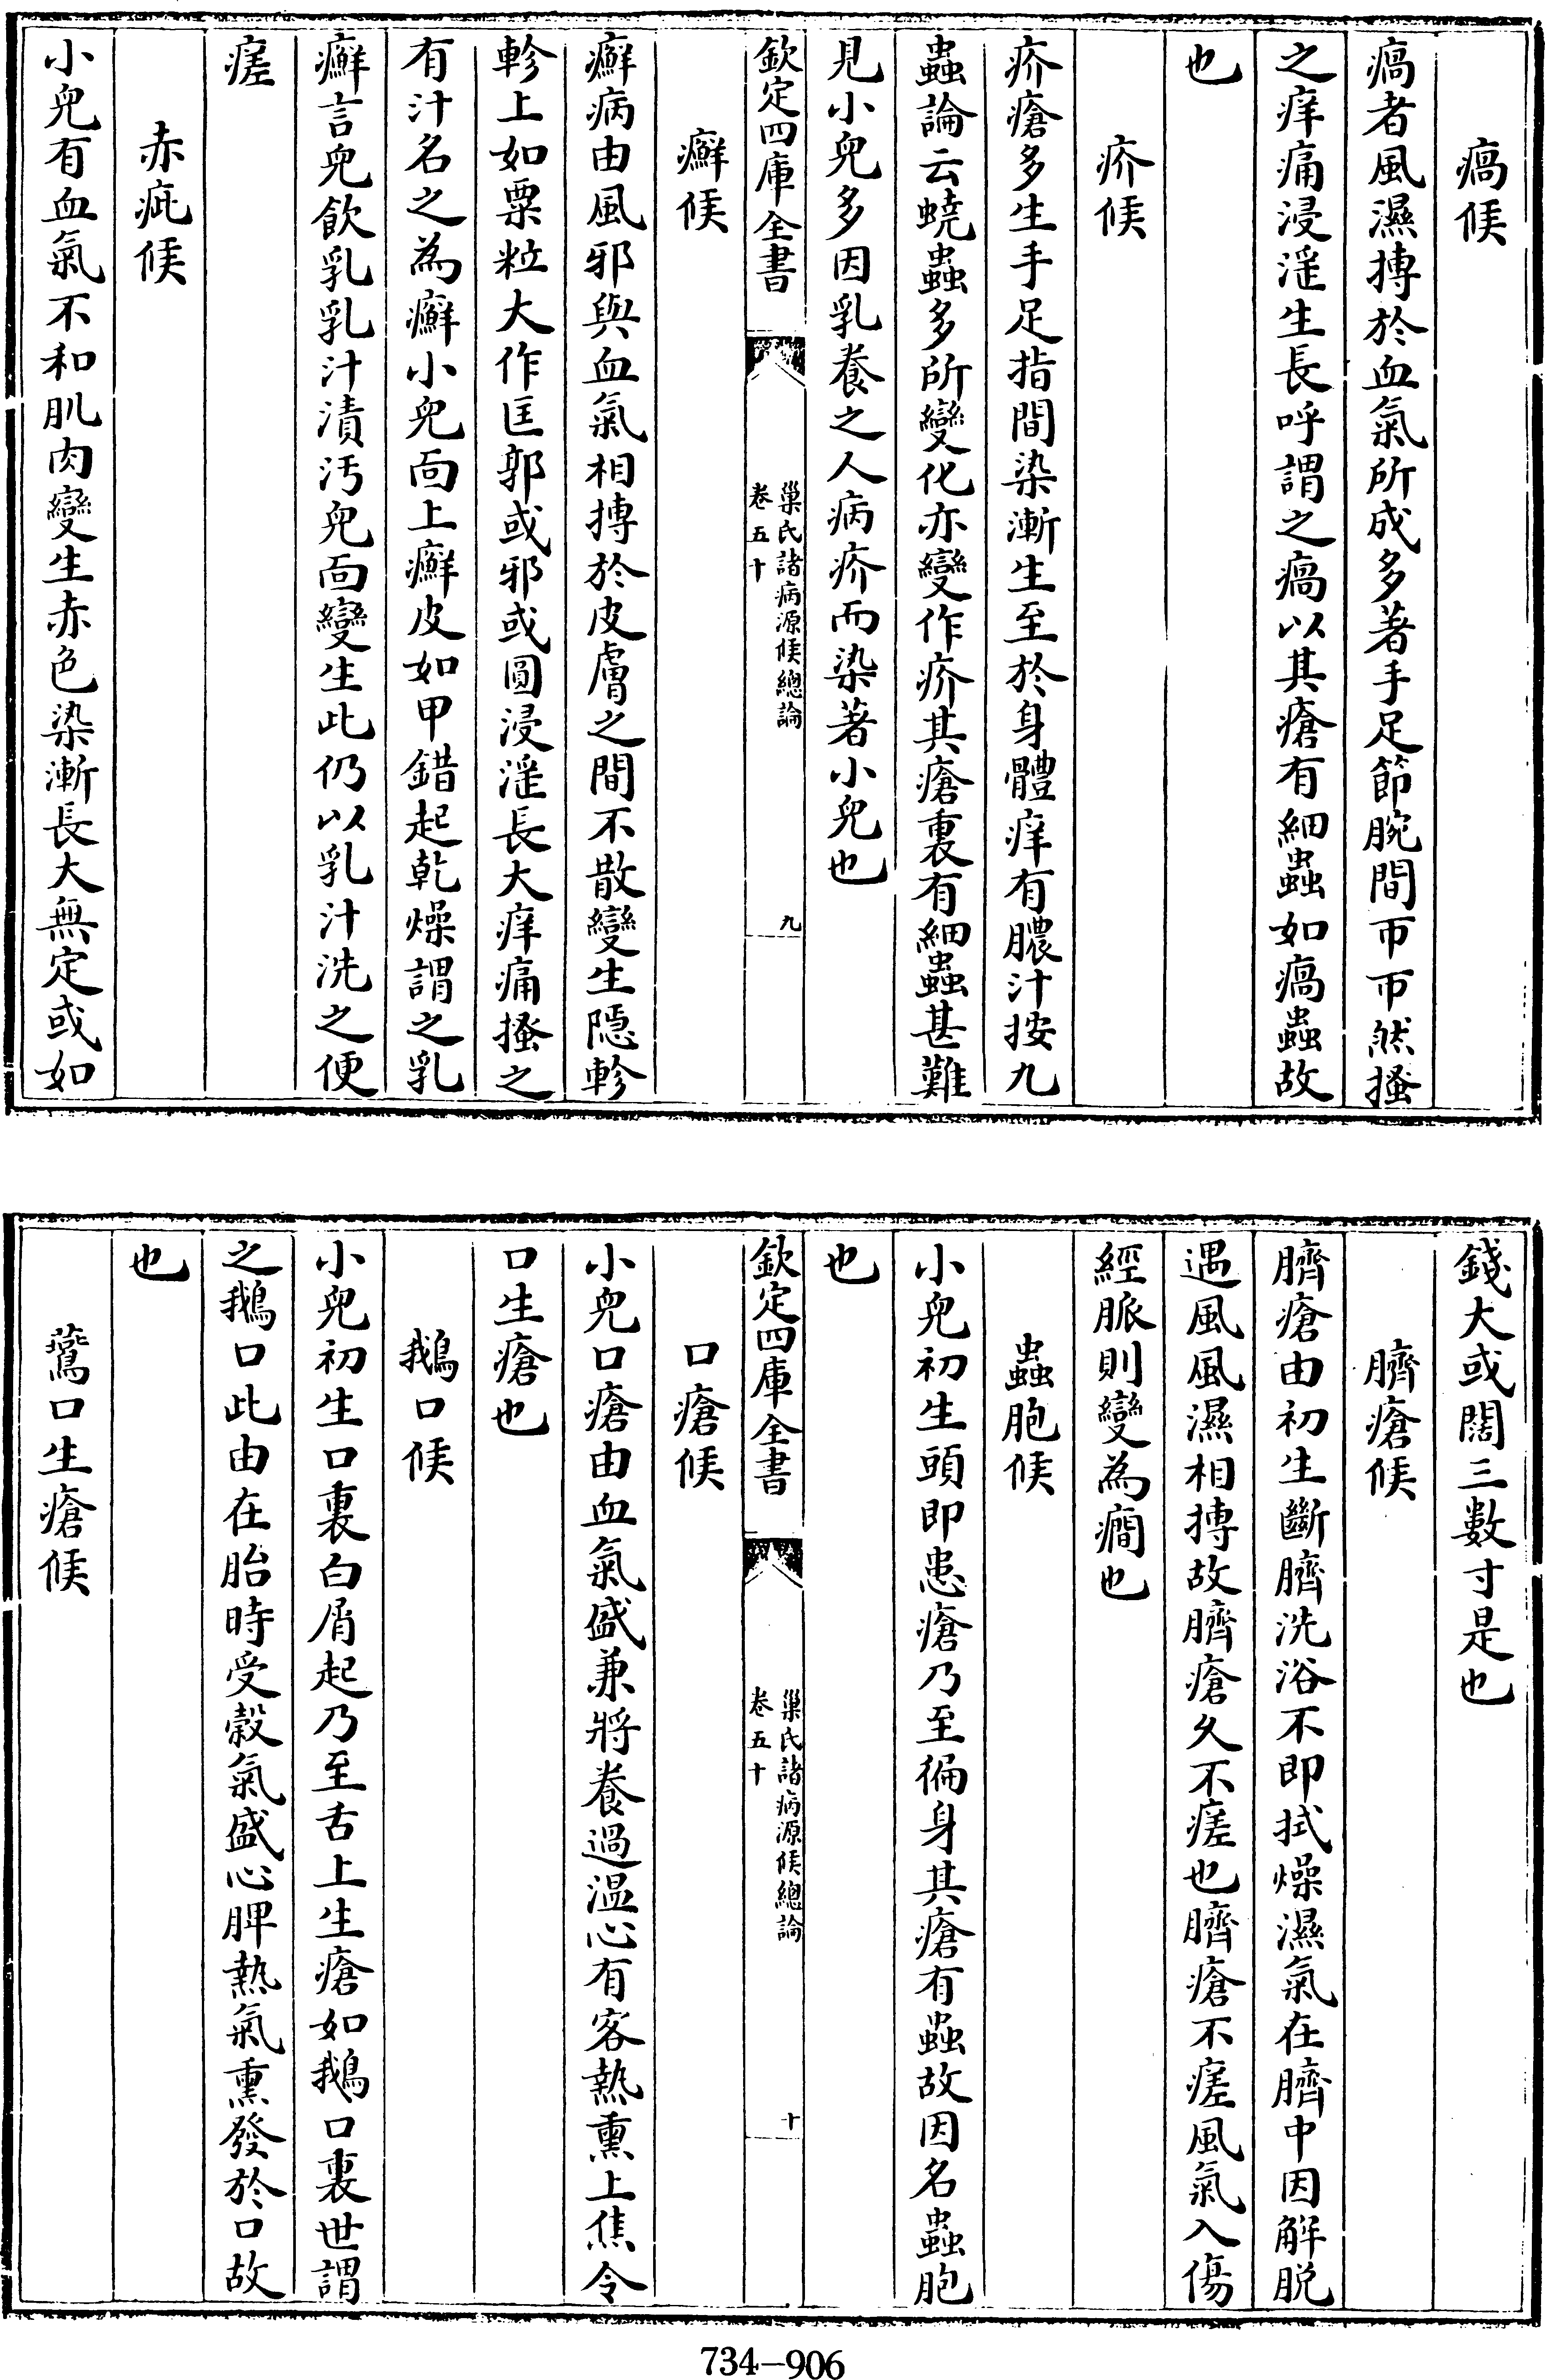 瘑候
瘑者風濕搏於血氣所成多著手足節腕間帀帀然搔
之痒痛浸淫生長呼謂之瘑以其瘡有細蟲如瘑蟲故
也
疥候
疥瘡多生手足指間染漸生至於身體痒有膿汁按九
蟲論云蟯蟲多所變化亦變作疥其瘡裏有細蟲甚難
見小兒多因乳養之人病疥而染著小兒也
欽定四庫全書
巢氏諸病源候總論
卷五十
九
癬候
癬病由風邪與血氣相搏於皮膚之間不散變生隱軫
軫上如粟粒大作匡郭或邪或圓浸淫長大痒痛搔之
有汁名之為癬小兒面上癬皮如甲錯起乾燥謂之乳
癬言兒飲乳乳汁漬汚兒面變生此仍以乳汁洗之便
瘥
赤疵候
小兒有血氣不和肌肉變生赤色染漸長大無定或如
錢大或闊三數寸是也
臍瘡候
臍瘡由初生斷臍洗浴不即拭燥濕氣在臍中因解脱
遇風風濕相搏故臍瘡久不瘥也臍瘡不瘥風氣入傷
經脈則變為癇也
蟲胞候
小兒初生頭即患瘡乃至徧身其瘡有蟲故因名蟲胞
也
欽定四庫全書
巢氏諸病源候總論
卷五十
十
口瘡候
小兒口瘡由血氣盛兼將養過温心有客熱熏上焦令
口生瘡也
鵝口候
小兒初生口裏白屑起乃至舌上生瘡如鵝口裏世謂
之鵝口此由在胎時受穀氣盛心脾熱氣熏發於口故
也
鷰口生瘡候
734-906